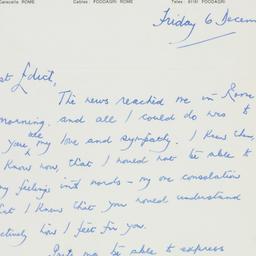 Caracalla ROME Cables: FOODAGRI ROME Telex: 61181 FOODAGRI
Friday 6 Decem
st Edith,
The news reached me in Rome
morning, and all I could do was to
all
you my love and sympathy. I knew then,
know now, that I would not be able to
my feelings into words – my one consolation
that I know that you would understand
actly how I feel for you.
be able to express